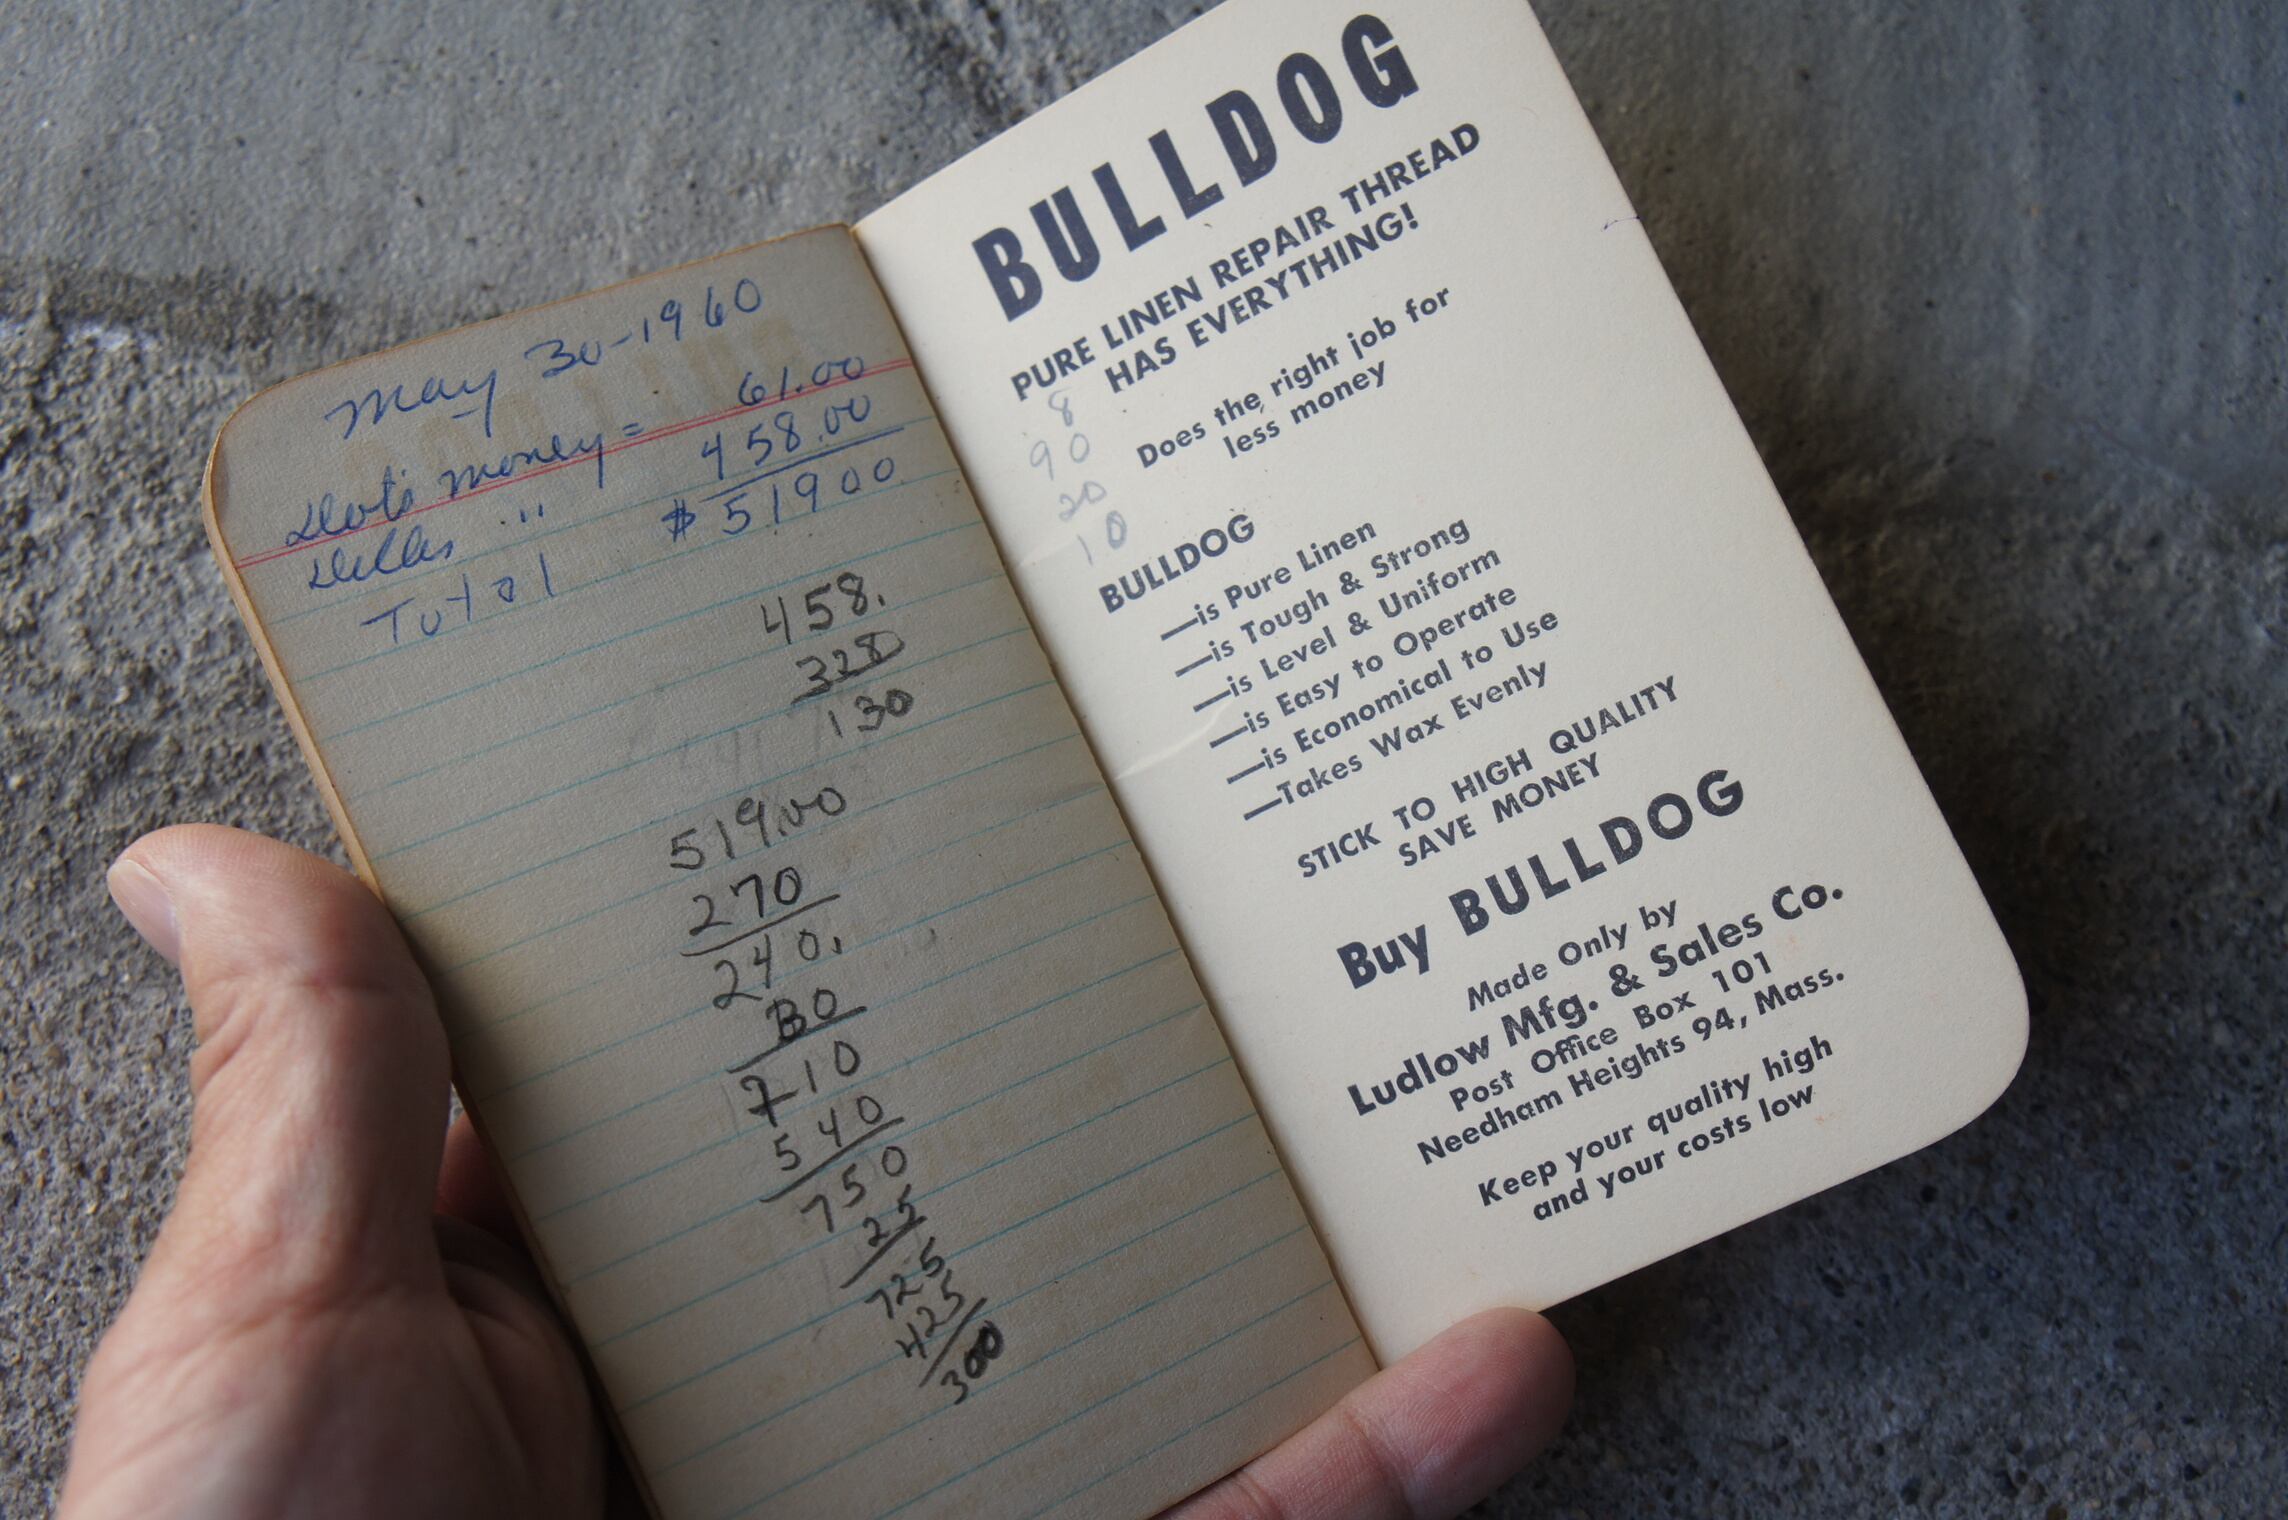 May 30-1960
Dot's money = 61.00
Dilles " 458.00
Total $ 519 00
458.
328
130
519.00
270
240.
30
710
540
750
25
725
425
300
BULLDOG
PURE LINEN REPAIR THREAD
HAS EVERYTHING!
Does the right job for
less money
8
90
20
10
BULLDOG
—is Pure Linen
—is Tough & Strong
—is Level & Uniform
—is Easy to Operate
—is Economical to Use
—Takes Wax Evenly
STICK TO HIGH QUALITY
SAVE MONEY
Buy BULLDOG
Made Only by
Ludlow Mfg. & Sales Co.
Post Office Box 101
Needham Heights 94, Mass.
Keep your quality high
and your costs low